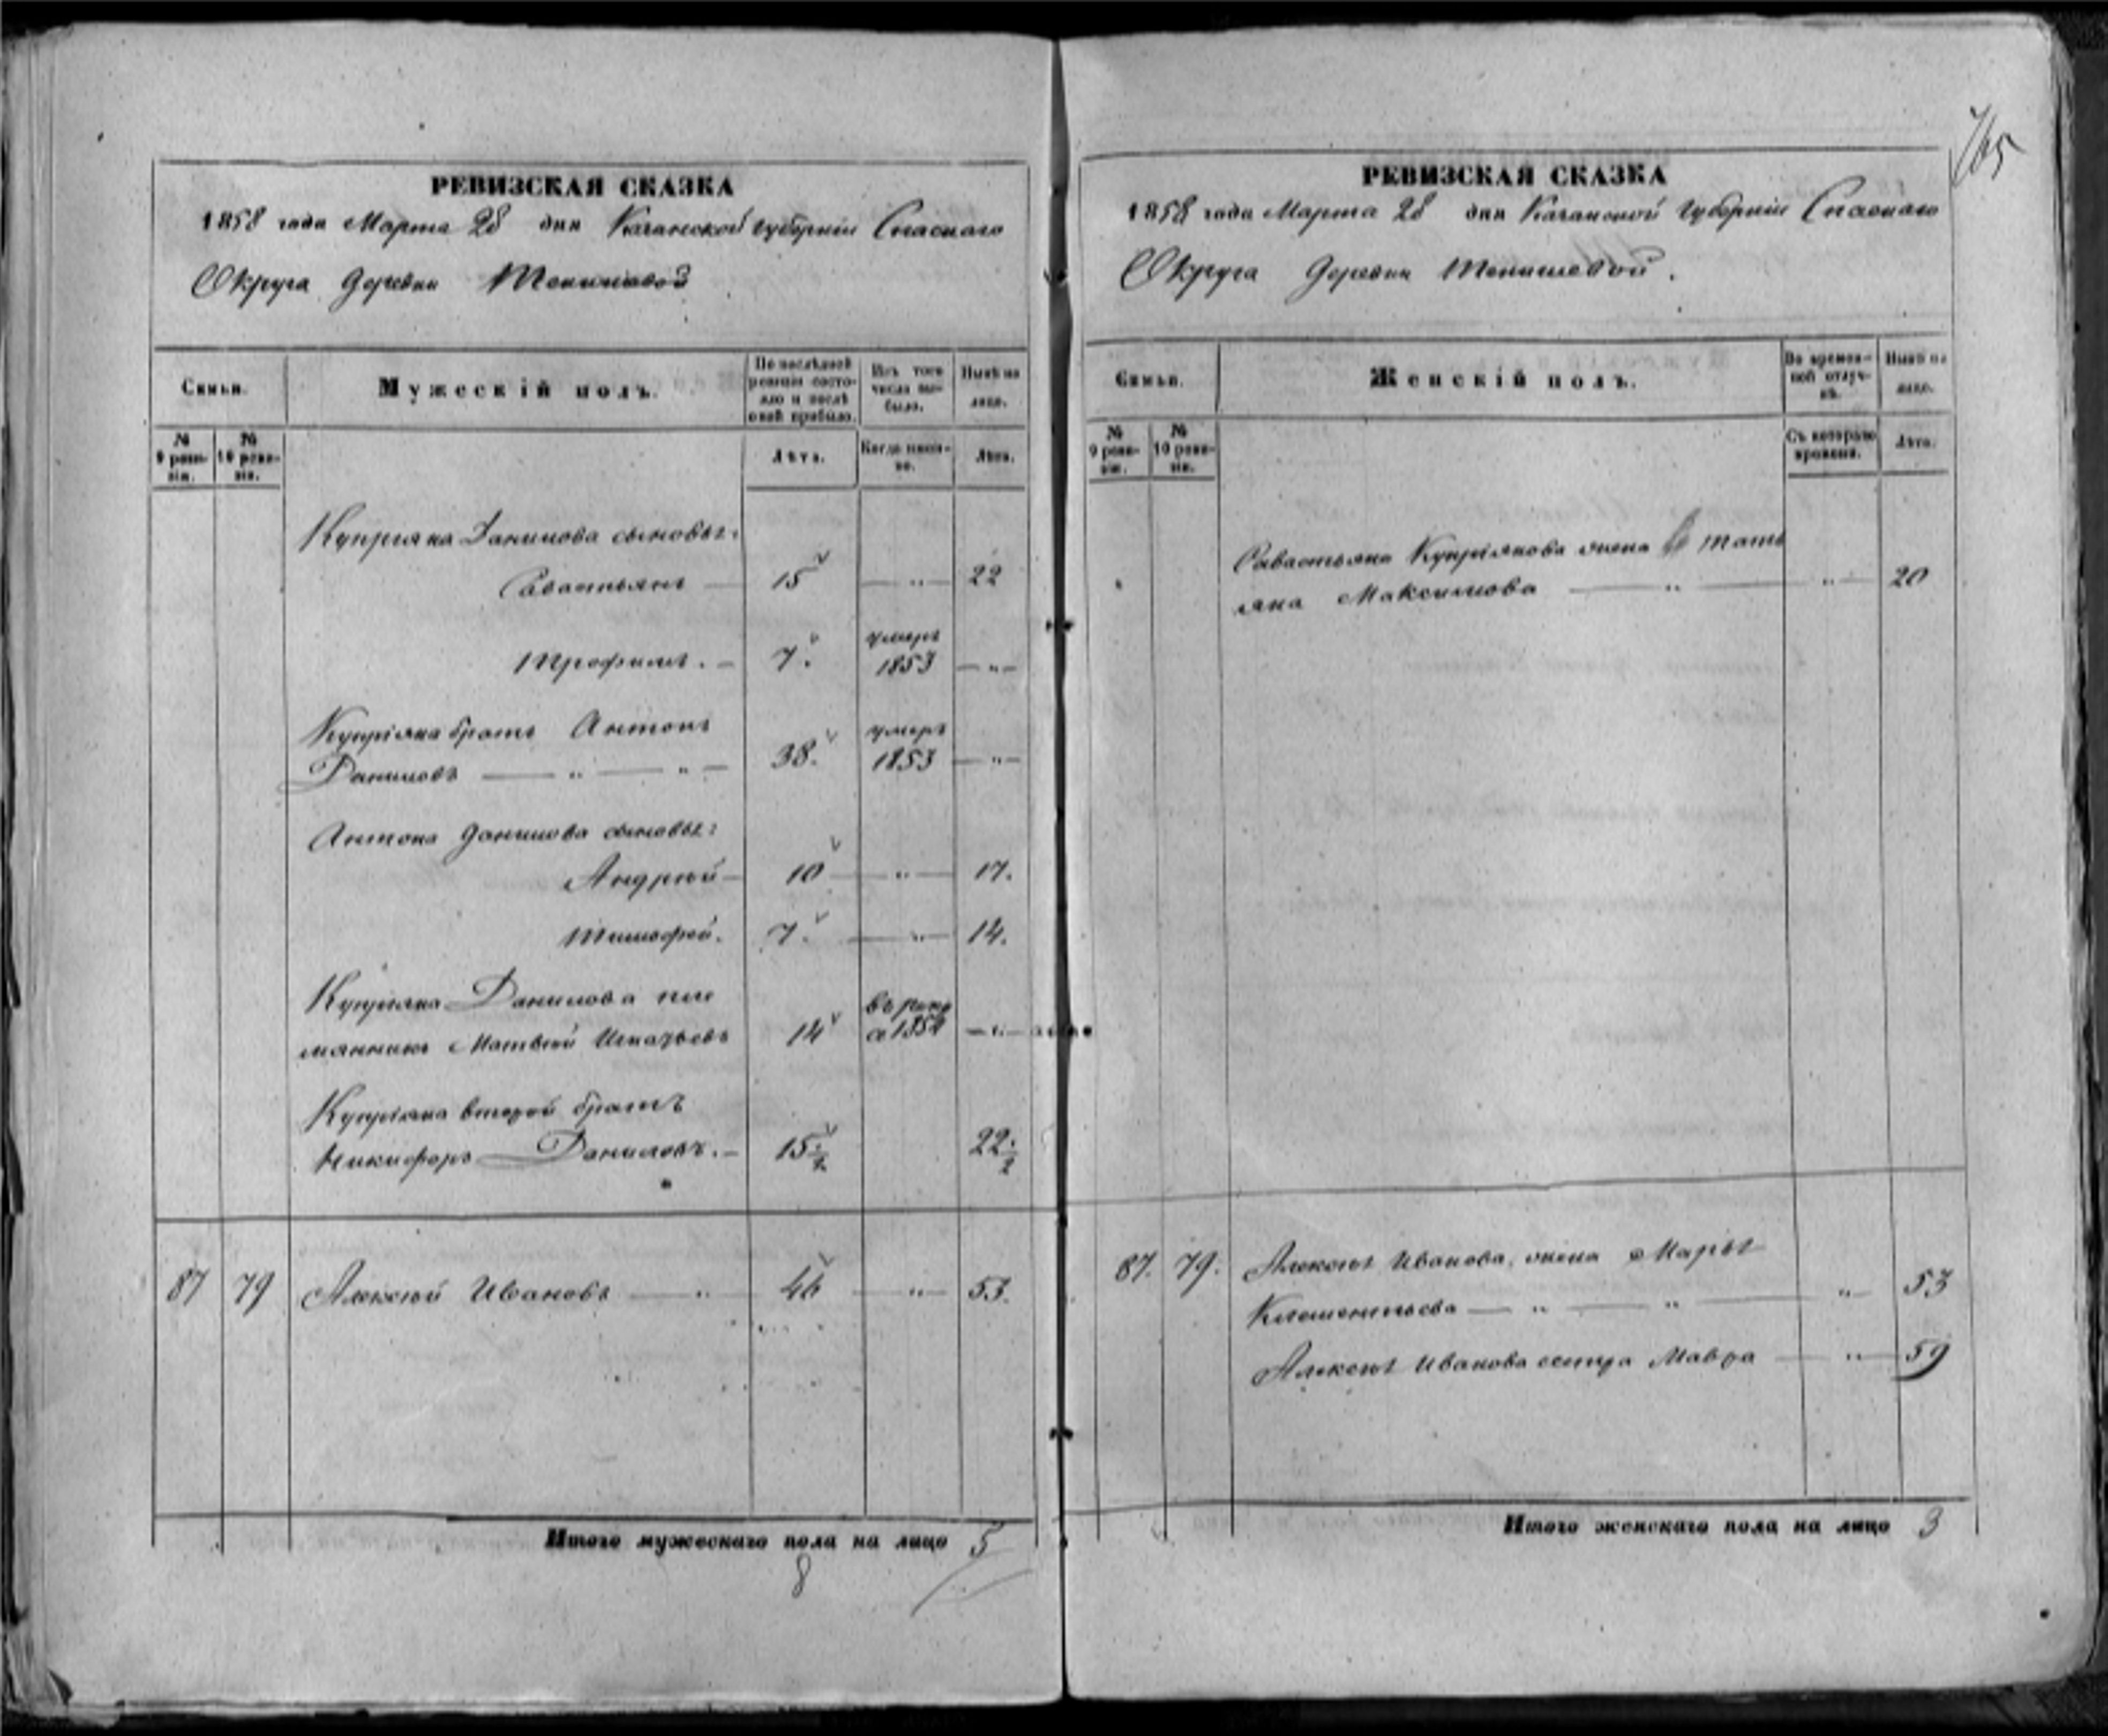 765
РЕВИЗСКАЯ СКАЗКА
1858 года Марта 28 дня Казанской губерніи Спаскаго
Округа деревни
Семьи.
Мужескій полъ.
По послѣдней ревизіи состояло и послѣ оной прибыло.
Изъ того числа выбыло.
Нынѣ на лицо.
№ 9 ревизіи.
№ 10 ревизіи.
Лѣта.
Когда именно.
Лѣта.
Купріяна Данилова сыновья:
Савастьянъ — 15 — „ — 22
Трофимъ. — 7. умеръ 1853 — „ —
Купріяна братъ Антонъ
Даниловъ — „ — „ — 38. умеръ 1853 — „ —
Антона Данилова сыновья:
Андрей — 10 — „ — 17.
Тимофей. 7. — „ — 14.
Купріяна Данилова пле
мянникъ Матвей Игнатьевъ 14 — „ —
Купріяна второй братъ
Никифоръ Даниловъ. — 15 1/2 22 1/2
87 79 Алексѣй Ивановъ — „ 46 — „ — 53.
Итого мужескаго пола на лицо 5
8
РЕВИЗСКАЯ СКАЗКА
1858 года Марта 28 дня Казанской губерніи Спаскаго
Округа деревни
Семьи.
Женскій полъ.
Во временной отлучкѣ.
Нынѣ на лицо.
№ 9 ревизіи.
№ 10 ревизіи.
Съ котораго времени.
Лѣта.
Савастьяна Купріянова жена Тать
яна Максимова — „ — „ — 20
87. 79. Алексѣя Иванова жена Марья
Клементьева — „ — „ — „ — 53
Алексѣя Иванова сестра Мавра — „ — 59
Итого женскаго пола на лицо 3